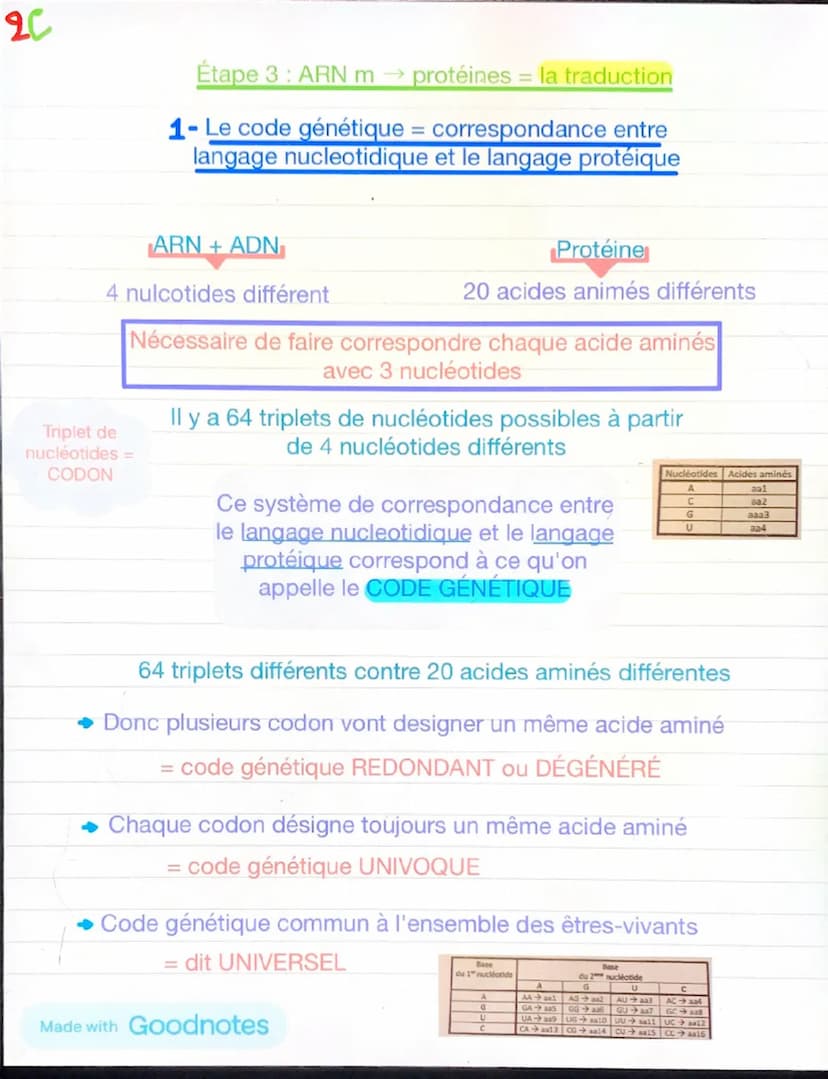 2C
Étape 3 : ARN m → protéines = la traduction
1- Le code génétique = correspondance entre
langage nucleotidique et le langage protéique
ARN + ADN
Protéine
4 nulcotides différent
20 acides animés différents
Nécessaire de faire correspondre chaque acide aminés
avec 3 nucléotides
Il y a 64 triplets de nucléotides possibles à partir
de 4 nucléotides différents
Triplet de
nucléotides =
CODON
Nucléotides Acides aminés
A aa1
C aa2
G aaa3
U aa4
Ce système de correspondance entre
le langage nucleotidique et le langage
protéique correspond à ce qu'on
appelle le CODE GÉNÉTIQUE
64 triplets différents contre 20 acides aminés différentes
Donc plusieurs codon vont designer un même acide aminé
= code génétique REDONDANT ou DÉGÉNÉRÉ
Chaque codon désigne toujours un même acide aminé
= code génétique UNIVOQUE
Code génétique commun à l'ensemble des êtres-vivants
= dit UNIVERSEL
Base
du 1er nucléotide
Base
du 2ème nucléotide
A G U C
A AA → aa1 AG → aa2 AU → aa3 AC → aa4
G GA → aa5 GG → aa6 GU → aa7 GC → aa8
U UA → aa9 UG → aa10 UU → aa11 UC → aa12
C CA → aa13 CG → aa14 CU → aa15 CC → aa16
Made with Goodnotes